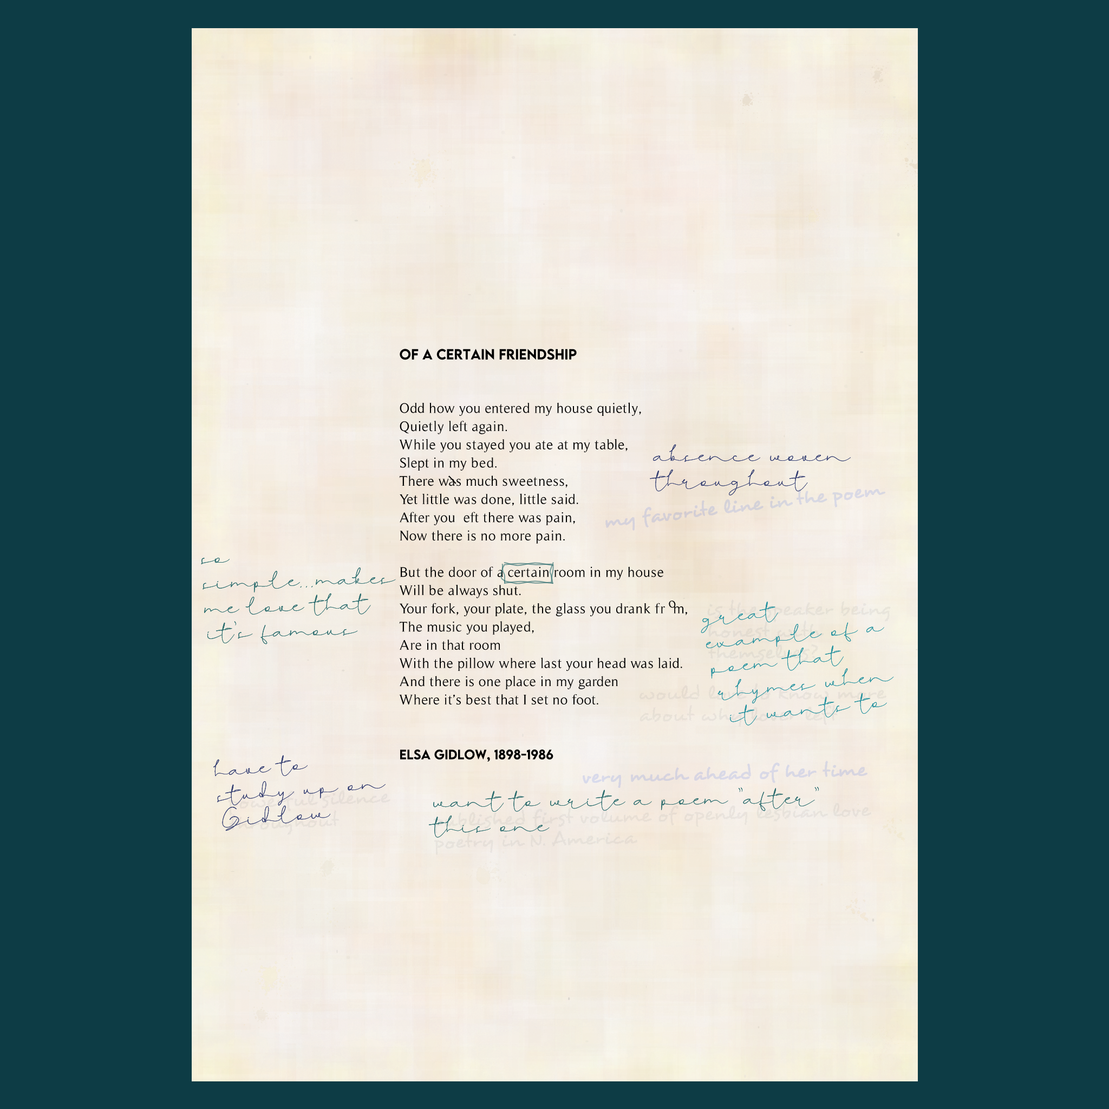 OF A CERTAIN FRIENDSHIP
Odd how you entered my house quietly,
Quietly left again.
While you stayed you ate at my table,
Slept in my bed.
There was much sweetness,
Yet little was done, little said.
After you eft there was pain,
Now there is no more pain.
absence woven
throughout
my favorite line in the poem
But the door of a certain room in my house
Will be always shut.
Your fork, your plate, the glass you drank from,
The music you played,
Are in that room
With the pillow where last your head was laid.
And there is one place in my garden
Where it's best that I set no foot.
so
simple...makes
me love that
it's famous
great
example of a
poem that
rhymes when
it wants to
is the speaker being
honest
themselves?
would know more
about
ELSA GIDLOW, 1898-1986
have to
study up on
Gidlow
silence
throughout
very much ahead of her time
want to write a poem "after"
this one
published first volume of openly lesbian love
poetry in N. America